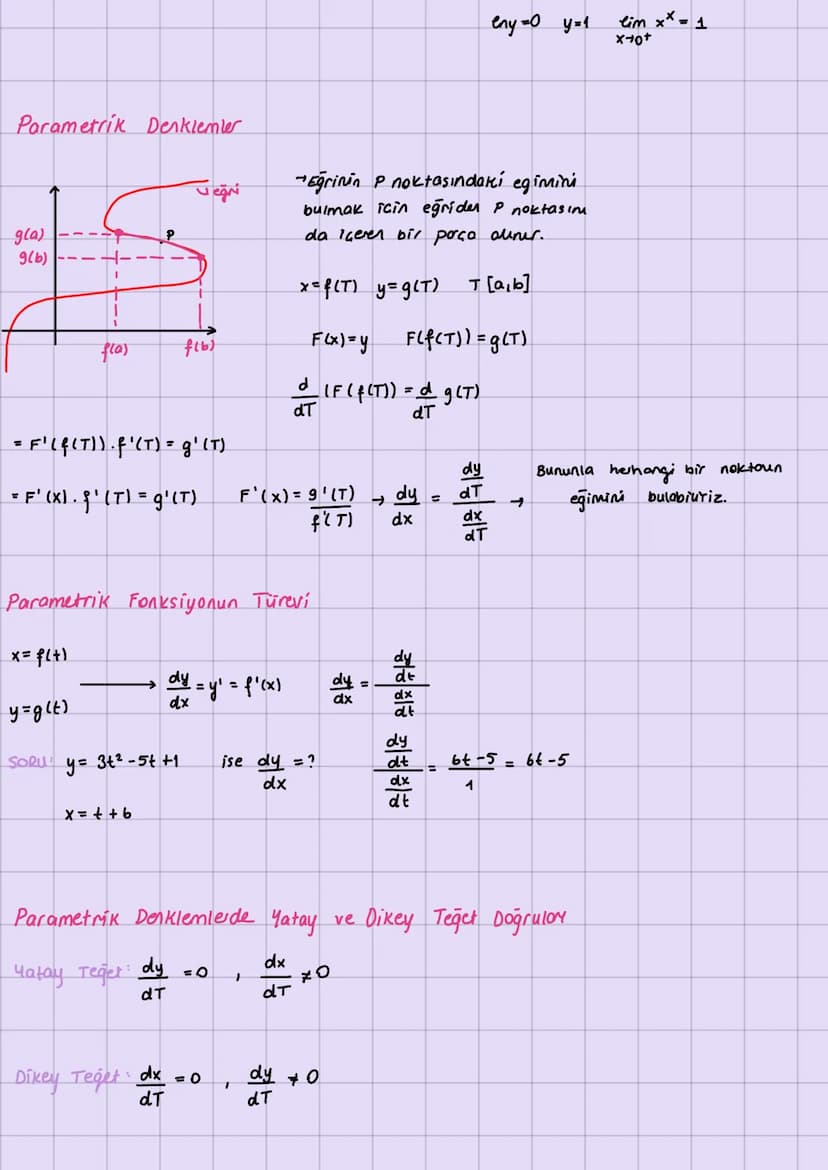 lny=0 y=1 lim x^x = 1
x→0+
Parametrik Denklemler
eğri
g(a)
P
g(b)
f(a) f(b)
→Eğrinin P noktasındaki egimini
bulmak icin eğriden P noktasını
da iceren bir parça alınır.
x=f(T) y=g(T) T [a,b]
F(x)=y F(f(T))=g(T)
d/dT (F(f(T)) = d/dT g(T)
= F'(f(T)).f'(T) = g'(T)
= F'(x).f'(T) = g'(T) F'(x) = g'(T)/f'(T) → dy/dx = (dy/dT)/(dx/dT) → Bununla herhangi bir noktanın
eğimini bulabiliriz.
Parametrik Fonksiyonun Türevi
x=f(t)
→ dy/dx = y' = f'(x) dy/dx = (dy/dt)/(dx/dt)
y=g(t)
SORU: y= 3t²-5t+1 ise dy/dx =? (dy/dt)/(dx/dt) = (6t-5)/1 = 6t-5
x=t+6
Parametrik Denklemlerde Yatay ve Dikey Teğet Doğrular
Yatay Teğet: dy/dT =0 , dx/dT ≠0
Dikey Teğet: dx/dT =0 , dy/dT ≠0